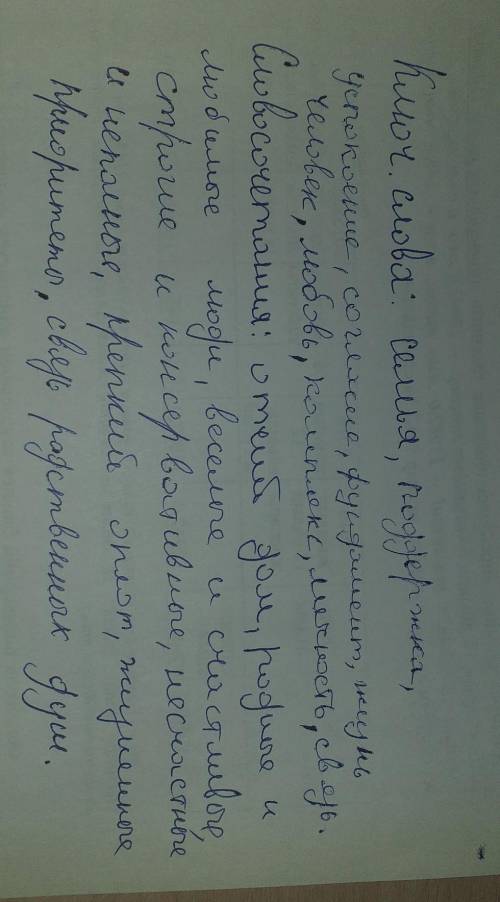 Ключ. слова: семья, поддержка,
успокоение, согласие, фундамент, жизнь
человек, любовь, комплекс, личность, связь.
Словосочетания: отчий дом, родные и
любимые люди, веселые и счастливые,
строгие и консервативные, несчастные
и неполные, крепкий оплот, жизненные
приоритеты, связь родственных душ.